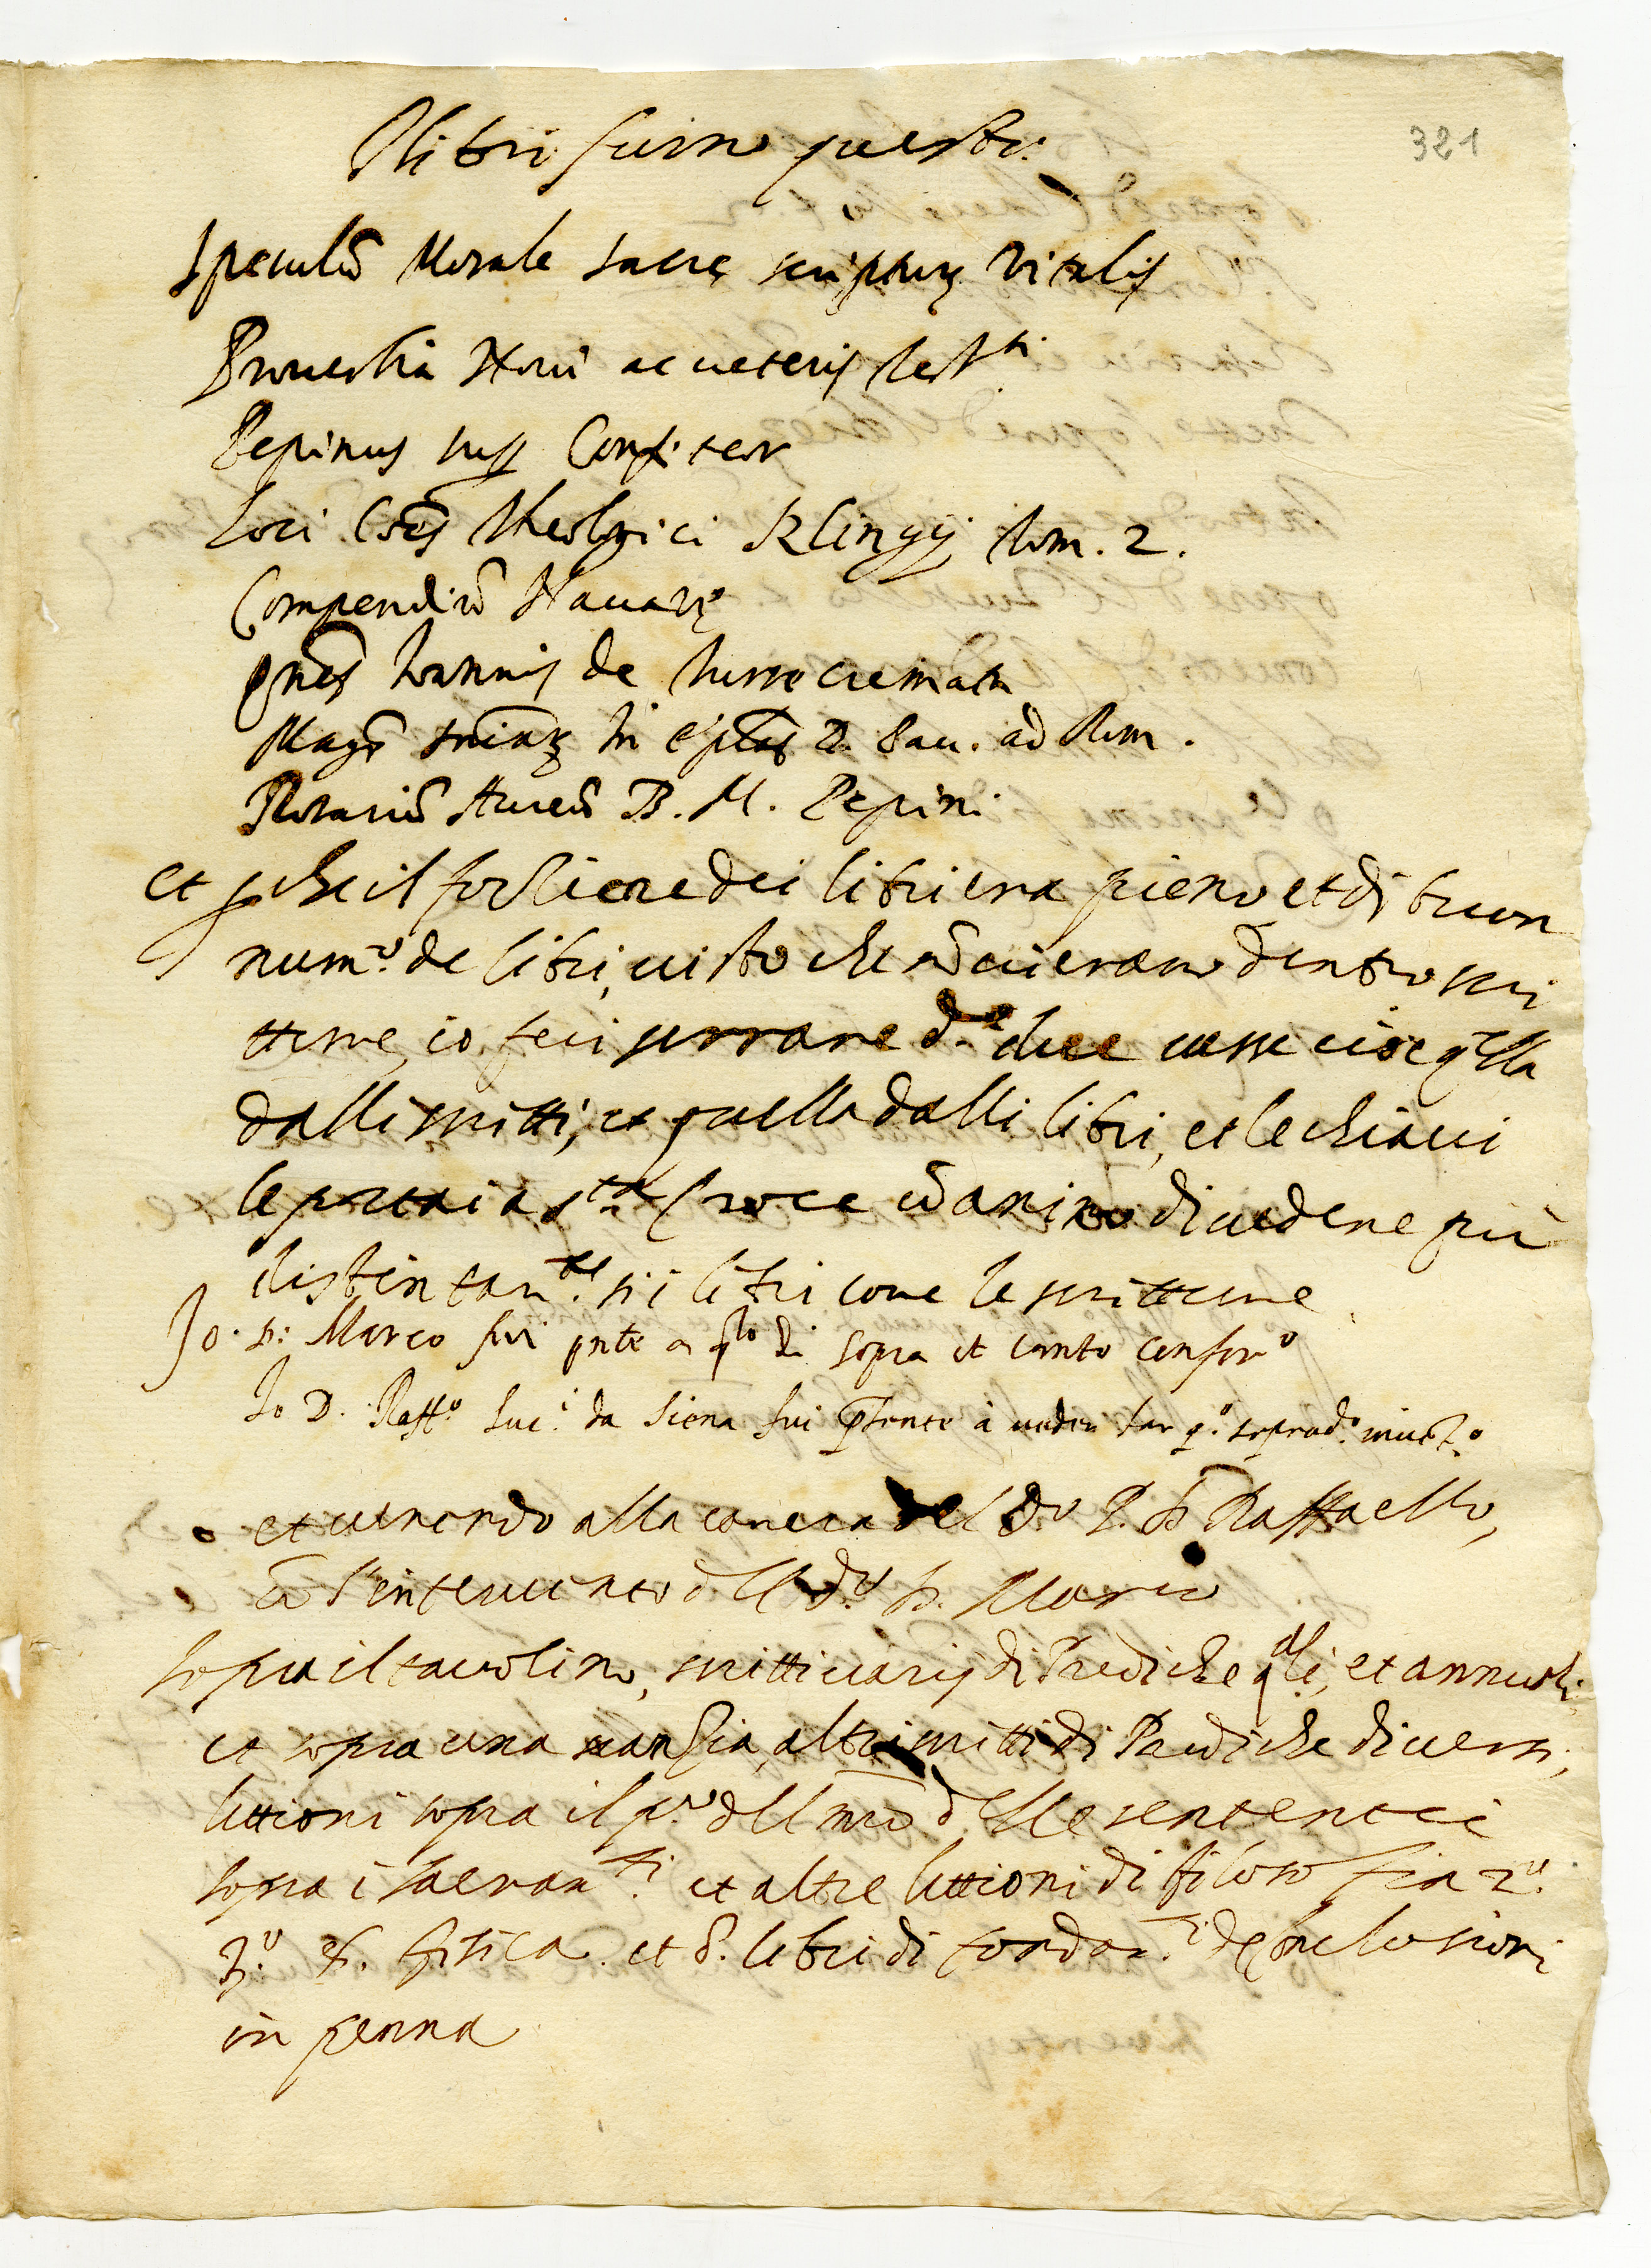 321
I libri furno questi
Speculũ Morale sacrę scripturę Vitalis
Prouerbia Noui ac ueteris Testti
Pepinus sup Confiteor
Loci Cões Theologici Klingij Tom. 2.
Compendiũ Nauarę
qnẽs Ioannis de Turre cremata
Magrĩ in eplas D. Pau. ad Rom.
Rosariũ Aureũ B. M. Pepini
et pche il forziere dei libri era pieno et di buon
numo. de libri, uisto che nõ ui erano dentro scri
tture, io feci serrare de. due casse cioe qlla
dalli scritti, et quella dalli libri, et le chiaui
le portai a sta Croce cõ animo di uedere piu
distintamte. si i libri come le scritture
Io. D: Marco fui pnte a qto di sopra et tanto confero
Io D. Raffo. Luci. da Siena fui pñsente à ueder far qo. sopradо. inueto
et uenendo alla camera del do P. D. Raffaello,
cõ l'interuento dell do. D. Marco
sopra il tauolino, scritti varij di Prediche qli, et annuali,
et sopra una scansia, altri scritti di Prediche diuersi,
lettioni sopra il po. dell mro delle sententie
sopra i sacramti. et altre lettioni di filosofia 2o.
3o. fisica. et 8. libri di
in penna